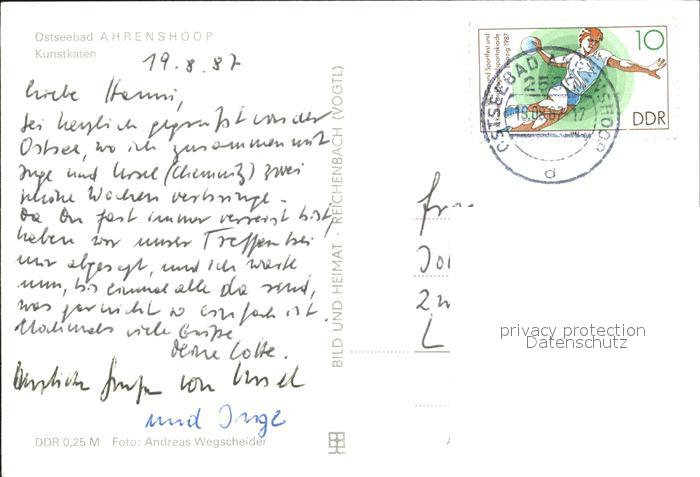 Ostseebad AHRENSHOOP
Kunstkaten
19.8.87
Liebe Hanni,
sei herzlich gegrüßt von der
Ostsee, wo ich zusammen mit
Inge und Ursel (Chemnitz) zwei
schöne Wochen verbringe.
Da Du fast immer verreist bist,
haben wir unser Treffen bei
mir abgesagt, und ich warte
nun, bis einmal alle da sind,
was gar nicht so einfach ist.
Nochmals viele Grüße
Deine Lotte.
Herzliche Grüße von Ursel
und Inge
DDR 0,25 M Foto: Andreas Wegscheider
BILD UND HEIMAT · REICHENBACH (VOGTL)
Turn- und Sportfest und
Spartakiade
Leipzig 1987
10
DDR
OSTSEEBAD AHRENSHOOP
19.08.87-17
a
privacy protection
Datenschutz